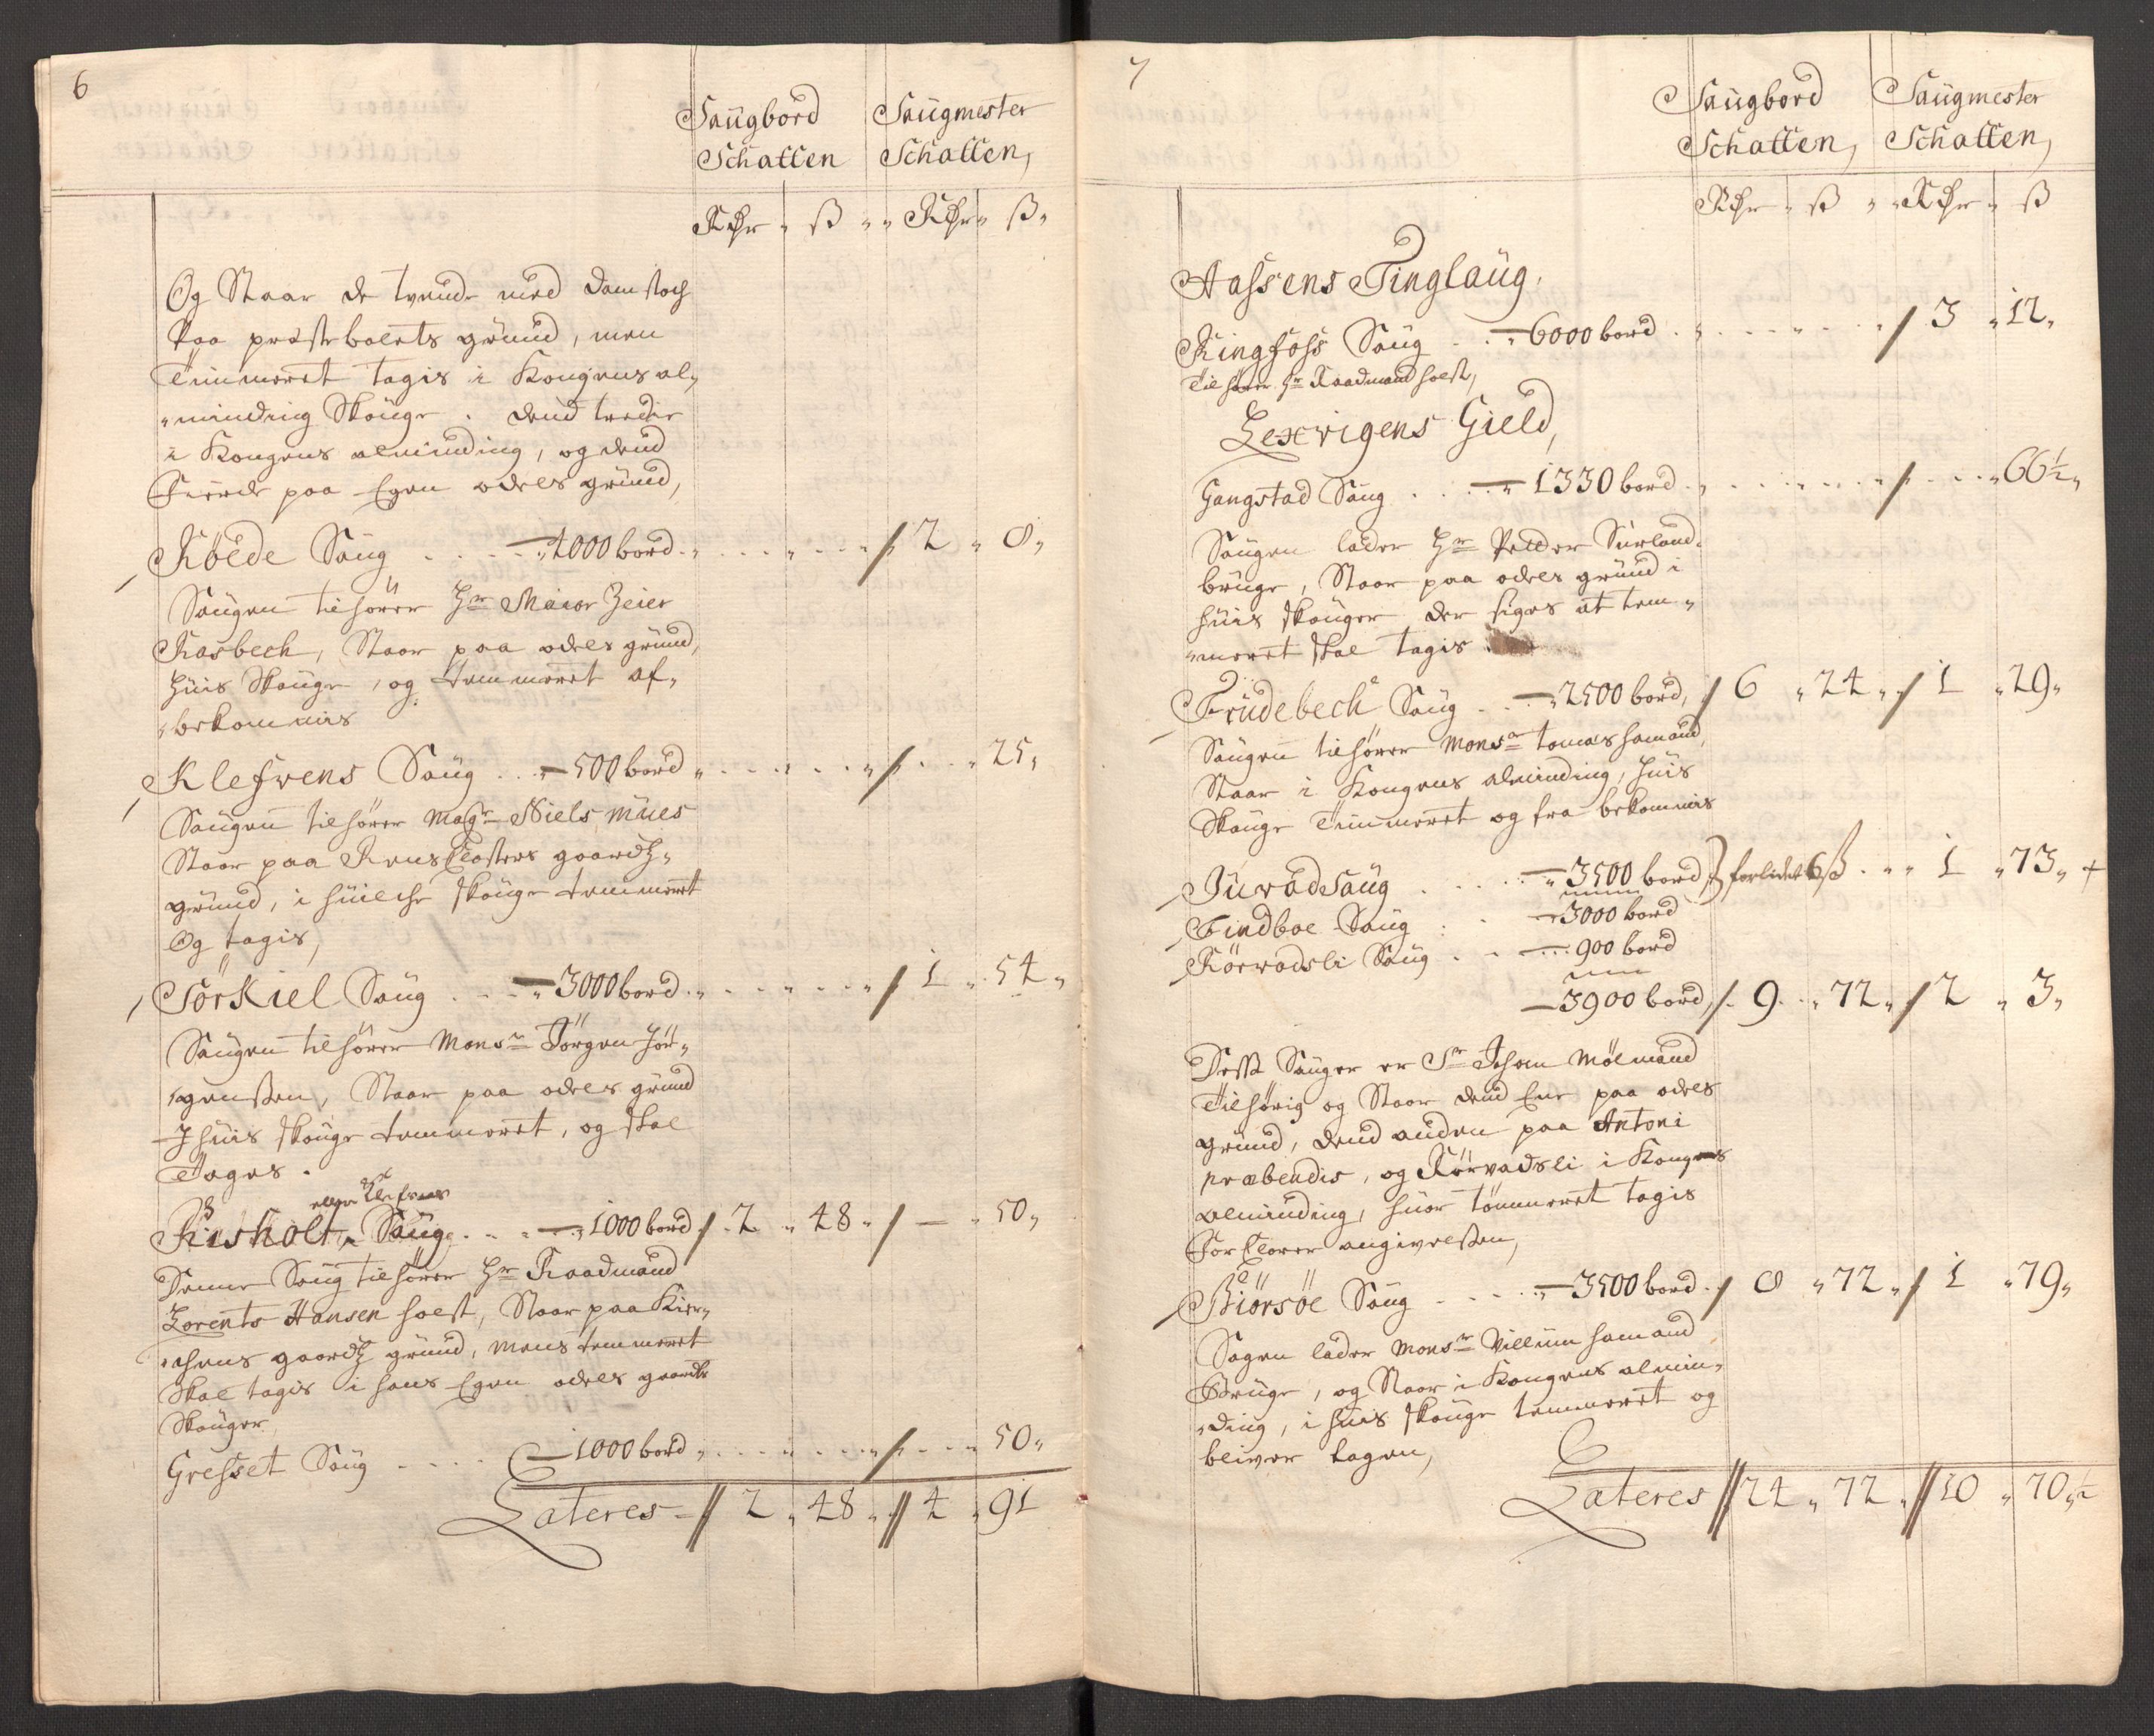 6
Saugbord Saugmester
Schatten Schatten,
Rdr ß Rdr ß
Og Staar de tvende med Damstoch
paa præsteboelets grund, men
Timmeret tagis i Kongens al-
minding Skouge. Dend tredie
i Kongens alminding, og dend
Fierde paa Egen odels grund,
Röede Saug 4000 bord 2 0
Saugen tilhörer Hr Maior Zeier
Rosbech, Staar paa odels grund,
huis Skouge, og temmeret af-
bekommis
Klefwens Saug 500 bord 25
Saugen tilhörer Magr Niels Mües
Staar paa Rens Closters goardtz
grund, i huilche skouge temmeret
Og tagis,
Törkiel Saug 3000 bord 1 54
Saugen tilhörer Monsr Jörgen Jör-
genssen, Staar paa odels grund
I huis skouge temmeret, og skal
Tages.
eller Klefwens
Risholt Saug 1000 bord 2 48 — 50
Denne Saug tilhörer Hr Raadmand
Lorents Hansen holst, Staar paa Kier-
chens goardtz grund, mens temmeret
Skal tagis i hans Egen odels goardtz
Skouger
Gresset Saug 1000 bord 50
Lateres 2 48 4 91
7
Saugbord Saugmester
Schatten, Schatten,
Rdr ß Rdr ß
Aassens Tinglaug,
Ringfoss Saug 6000 bord 3 12
Tilhörer Hr Raadmand holst,
Lexvigens Gield,
Hangstad Saug 1330 bord 66½
Saugen lader Hr Petter Surland
bruge, Staar paa odels grund i
huis skouger der siges at tem-
meret skal tagis
Trudebech Saug 2500 bord, 6 24 1 29
Saugen tilhörer Monsr tomas hamand,
Staar i Kongens alminding, huis
Skouge Timmeret og fra bekommis
Juvadsaug 3500 bord forlidet 6 ß 1 73 +
Findboe Saug 3000 bord
Körvadsli Saug 900 bord
3900 bord, 9 72 2 3
Disse Sauger er Sr Johan Mölmand
Tilhörig og Staar dend Ene paa odels
grund, dend anden paa Antoni
præbendis, og Körvadsli i Kongens
alminding, huor tömmeret tagis
For Clarer angivelssen,
Biörsöe Saug 3500 bord 8 72 1 79
Sagen lader Monsr Villum hamand
Bruge, og Staar i Kongens almin-
ding, i huis skouge temmeret og
bliver tagen,
Lateres 24 72 10 70½